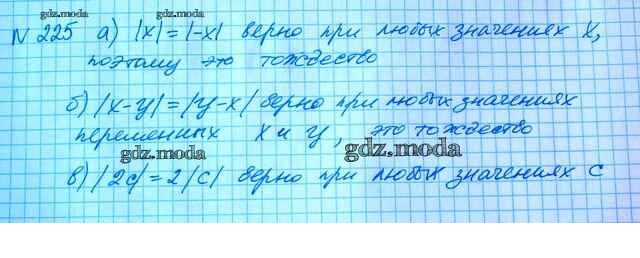 gdz.moda gdz.moda
N 225 а) |x| = |-x| верно при любых значениях x,
поэтому это тождество
б) |x-y| = |y-x| верно при любых значениях
переменных x и y, это тождество
gdz.moda gdz.moda
в) |2c| = 2|c| верно при любых значениях c